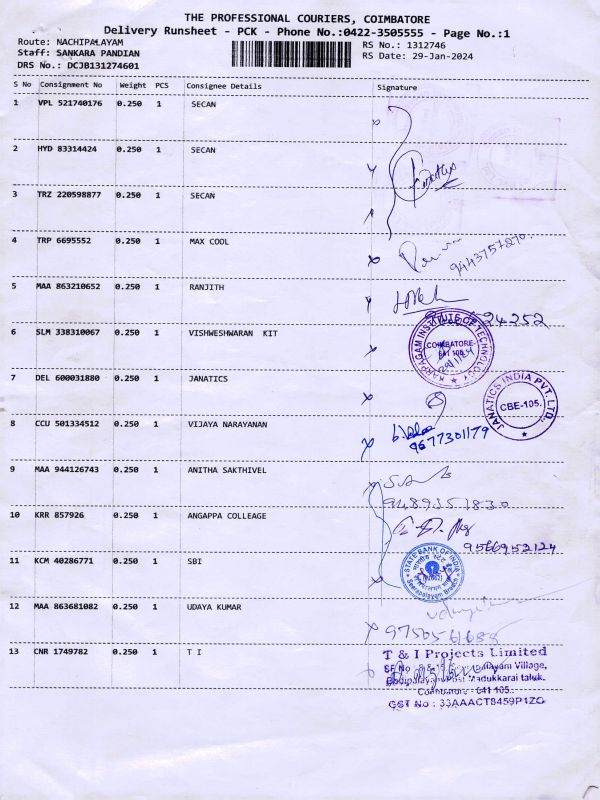 THE PROFESSIONAL COURIERS, COIMBATORE
Delivery Runsheet - PCK - Phone No.:0422-3505555 - Page No.:1
Route: NACHIPALAYAM
RS No.: 1312746
Staff: SANKARA PANDIAN
RS Date: 29-Jan-2024
DRS No.: DCJB131274601
S No Consignment No Weight PCS Consignee Details Signature
1 VPL 521740176 0.250 1 SECAN
2 HYD 83314424 0.250 1 SECAN
3 TRZ 220598877 0.250 1 SECAN
4 TRP 6695552 0.250 1 MAX COOL
9443757870.
5 MAA 863210652 0.250 1 RANJITH
24252
6 SLM 338310067 0.250 1 VISHWESHWARAN KIT
KARPAGAM INSTITUTE OF TECHNOLOGY
COIMBATORE-
641 105
7 DEL 600031880 0.250 1 JANATICS
JANATICS INDIA PVT. LTD.,
CBE-105.
8 CCU 501334512 0.250 1 VIJAYA NARAYANAN
9677301179
9 MAA 944126743 0.250 1 ANITHA SAKTHIVEL
9489357830
10 KRR 857926 0.250 1 ANGAPPA COLLEAGE
9566952124
11 KCM 40286771 0.250 1 SBI
STATE BANK OF INDIA
Seerapalayam Branch
12 MAA 863681082 0.250 1 UDAYA KUMAR
13 CNR 1749782 0.250 1 T I
T & I Projects Limited
SF No Village,
Post Madukkarai taluk.
Coimbatore - 641 105.
GST No : 33AAACT8459P1ZO